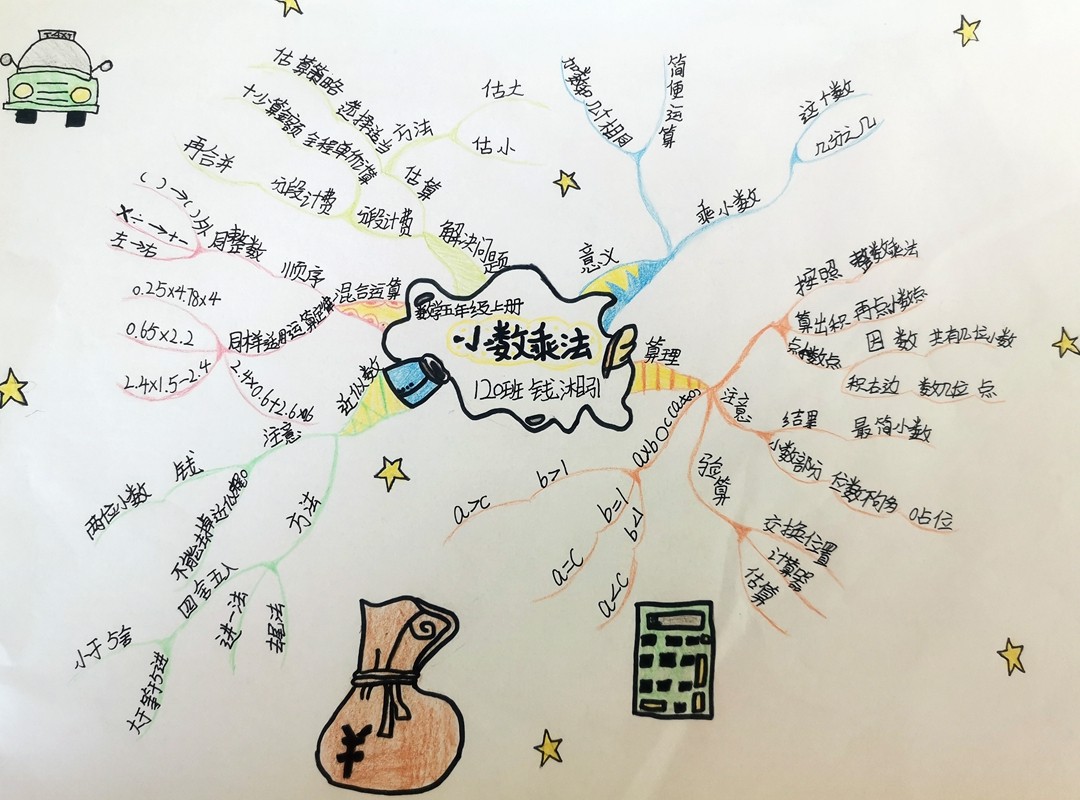 TAXI
数学五年级上册
小数乘法
120班 钱沐昍引
意义
乘小数
这个数
几分之几
几个相同
简便运算
算理
按照 整数乘法
算出积 再点小数点
点小数点
因数 共有几位小数
积右边 数几位 点
注意
结果 最简小数
小数部分 位数不够 0占位
验算
交换位置
计算器
估算
a×b○c(a≠0)
b>1
a>c
b=1
a=c
b<1
a<c
近似数
注意
钱
两位小数
不能去掉近似数尾0
方法
四舍五入
小于5舍
大于等于5进
进一法
去尾法
混合运算
顺序
同整数
( )→( )外
×÷→+-
左→右
同样适用运算定律
0.25×4.78×4
0.65×2.2
2.4×1.5-2.4
2.4×0.6+2.6×0.6
解决问题
估算
方法
估大
估小
选择适当
估算策略
分段计费
全程单价计算
分段计费
再合并